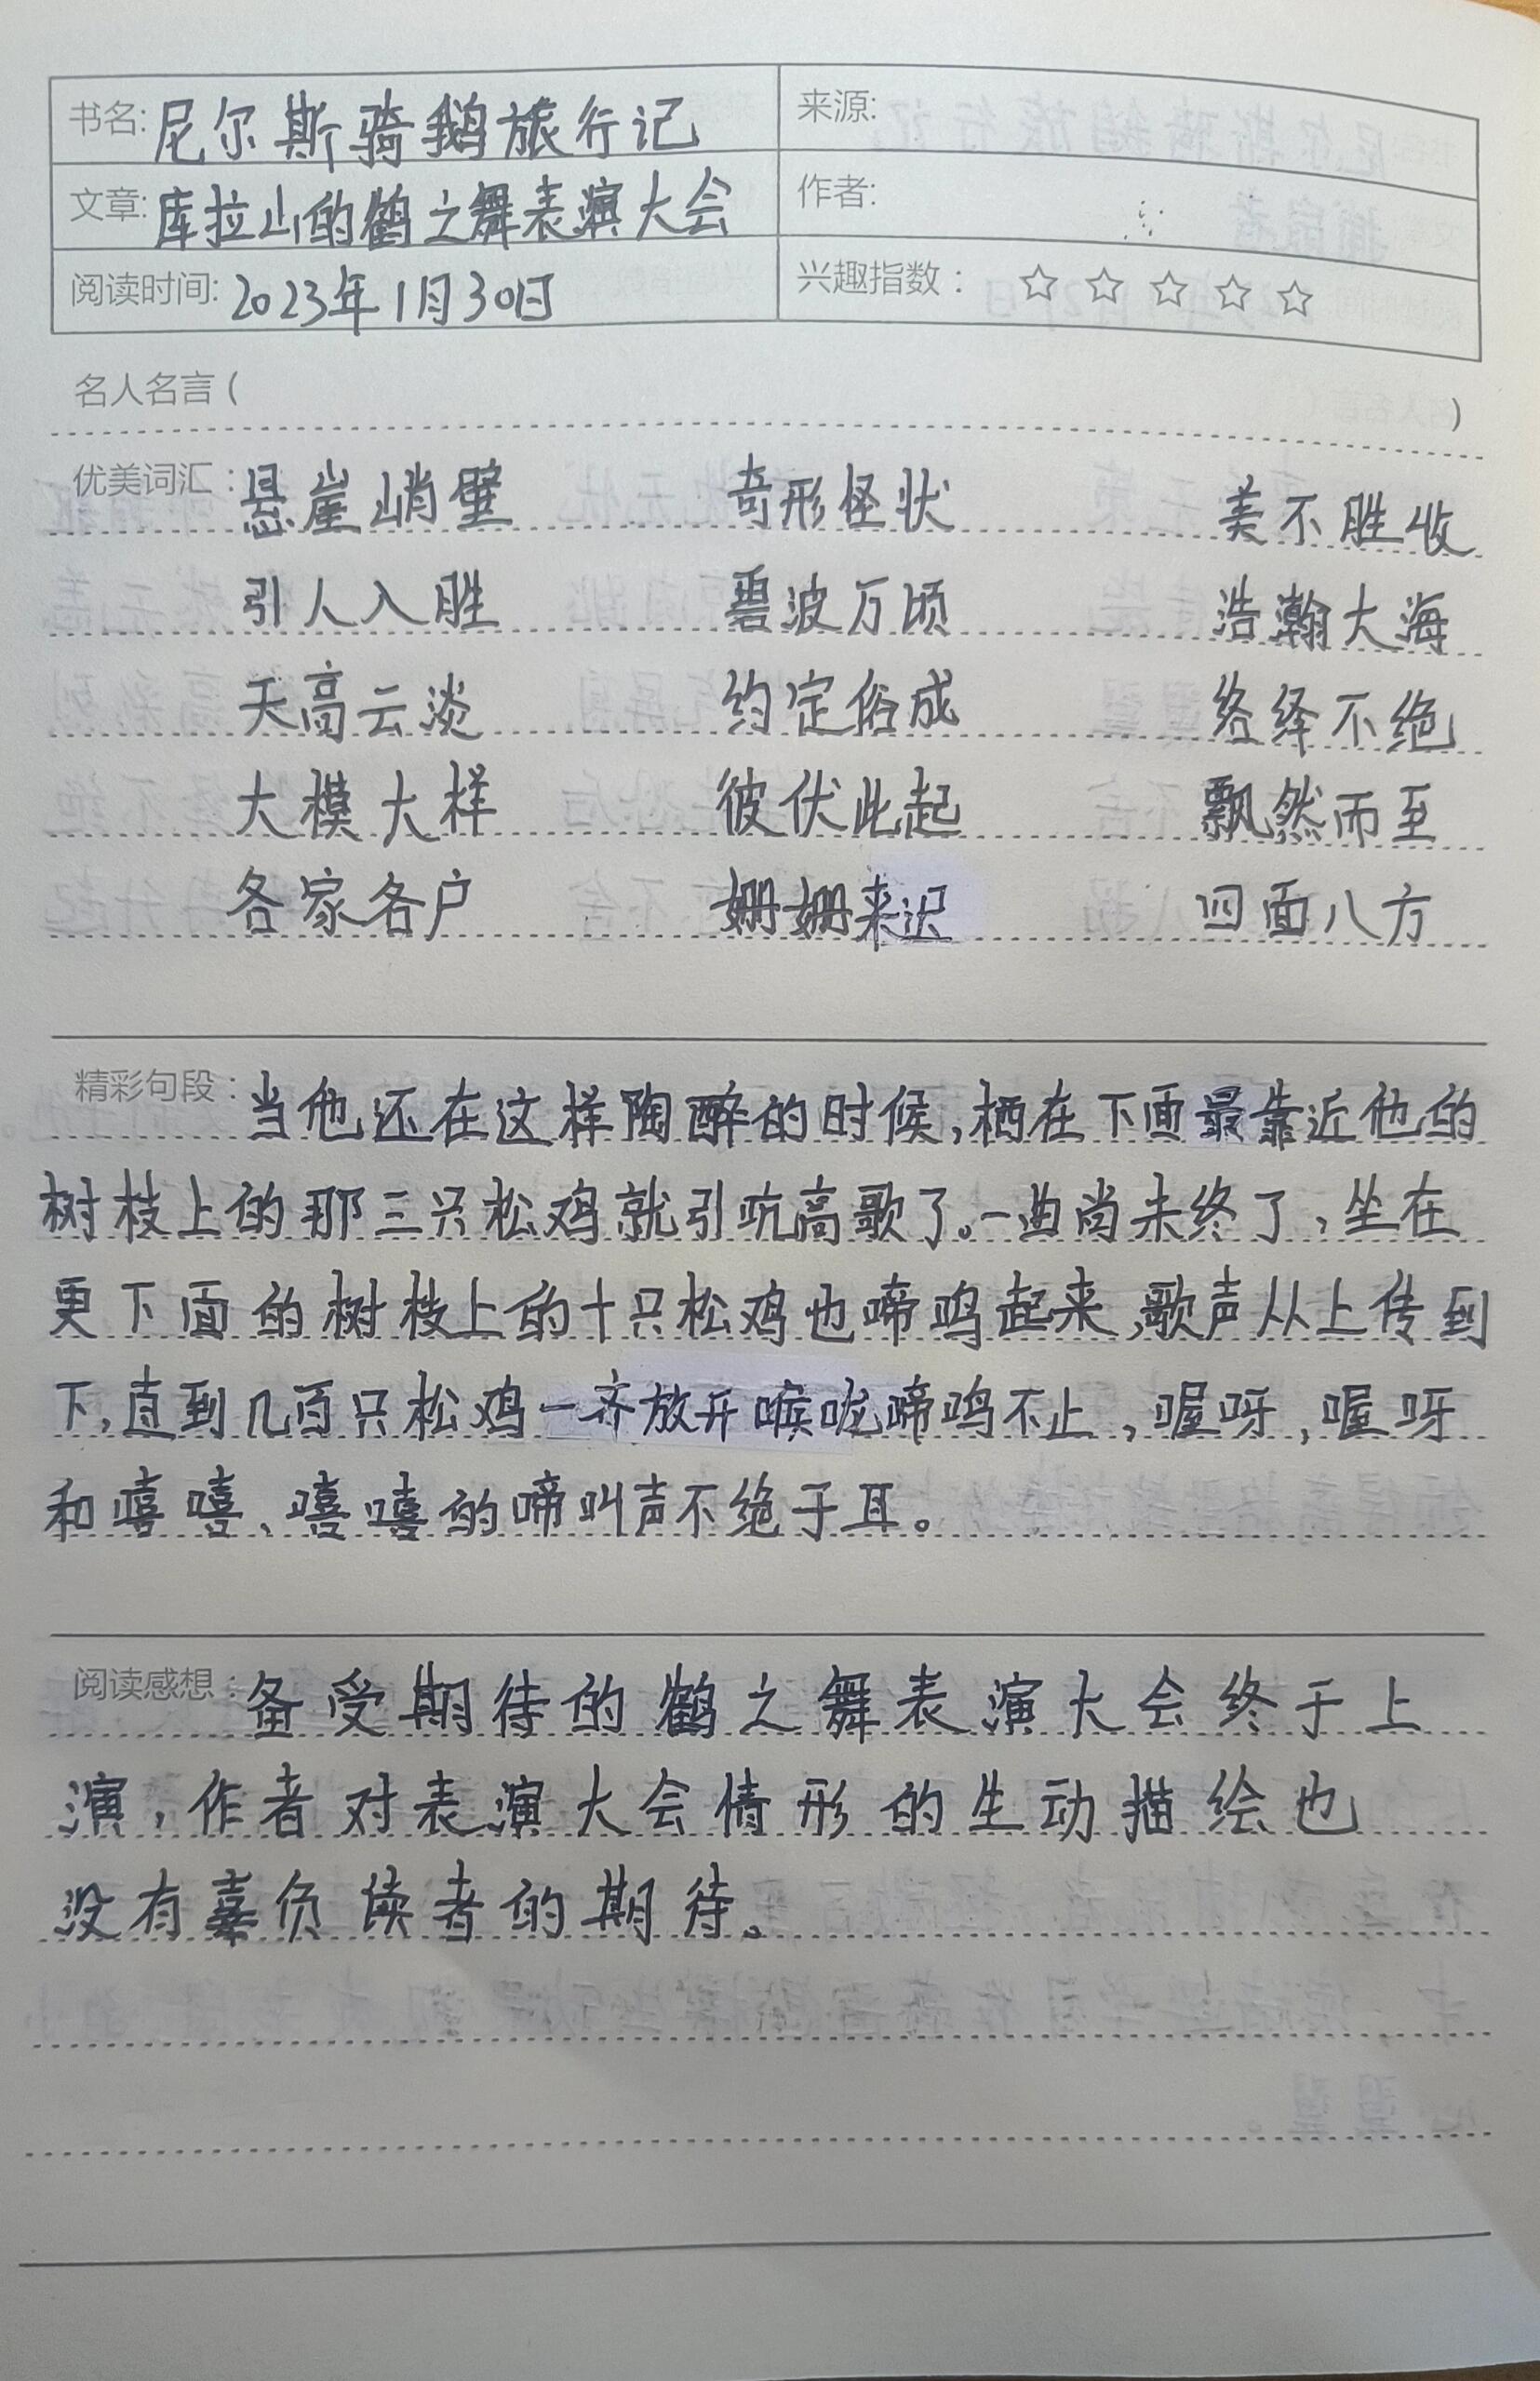 书名: 尼尔斯骑鹅旅行记 来源:
文章: 库拉山的鹤之舞表演大会 作者:
阅读时间: 2023年1月30日 兴趣指数: ☆ ☆ ☆ ☆ ☆
名人名言( )
优美词汇: 悬崖峭壁 奇形怪状 美不胜收
引人入胜 碧波万顷 浩瀚大海
天高云淡 约定俗成 络绎不绝
大模大样 彼伏此起 飘然而至
各家各户 姗姗来迟 四面八方
精彩句段: 当他还在这样陶醉的时候,栖在下面最靠近他的
树枝上的那三只松鸡就引吭高歌了。一曲尚未终了,坐在
更下面的树枝上的十只松鸡也啼鸣起来,歌声从上传到
下,直到几百只松鸡一齐放开喉咙啼鸣不止,喔呀,喔呀
和嘻嘻、嘻嘻的啼叫声不绝于耳。
阅读感想: 备受期待的鹤之舞表演大会终于上
演,作者对表演大会情形的生动描绘也
没有辜负读者的期待。